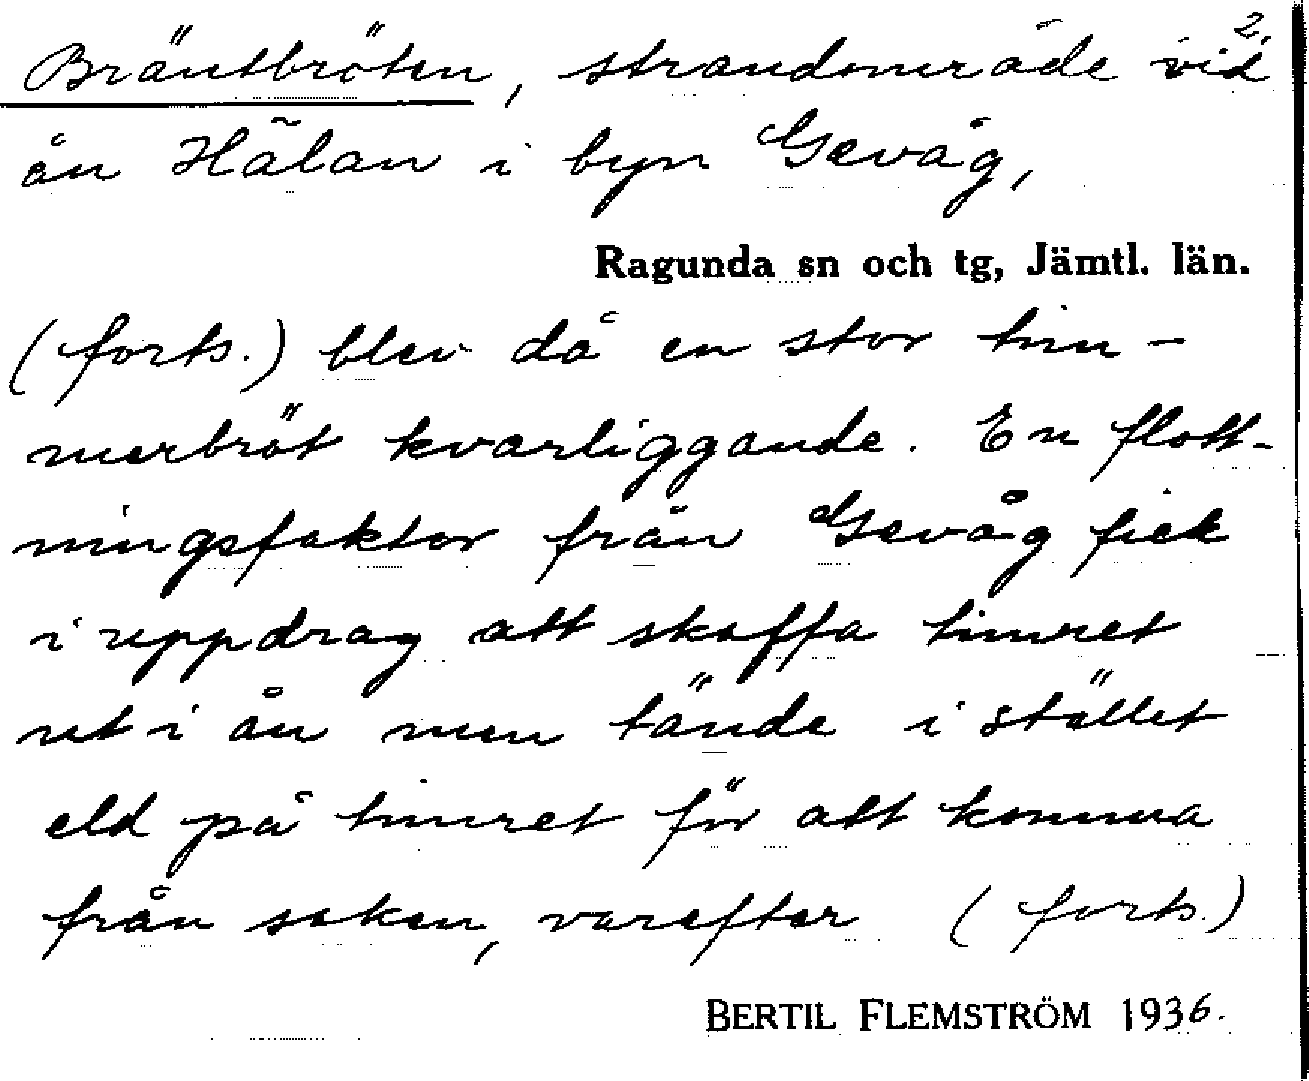 2.
Bräntbröten, strandområde vid
ån Hälan i byn Gevåg,
Ragunda sn och tg, Jämtl. län.
(forts.) blev då en stor tim-
merbröt kvarliggande. En flott-
ningsfaktor från Gevåg fick
i uppdrag att skaffa timret
ut i ån men tände i stället
eld på timret för att komma
från saken, varefter (forts.)
BERTIL FLEMSTRÖM 1936.